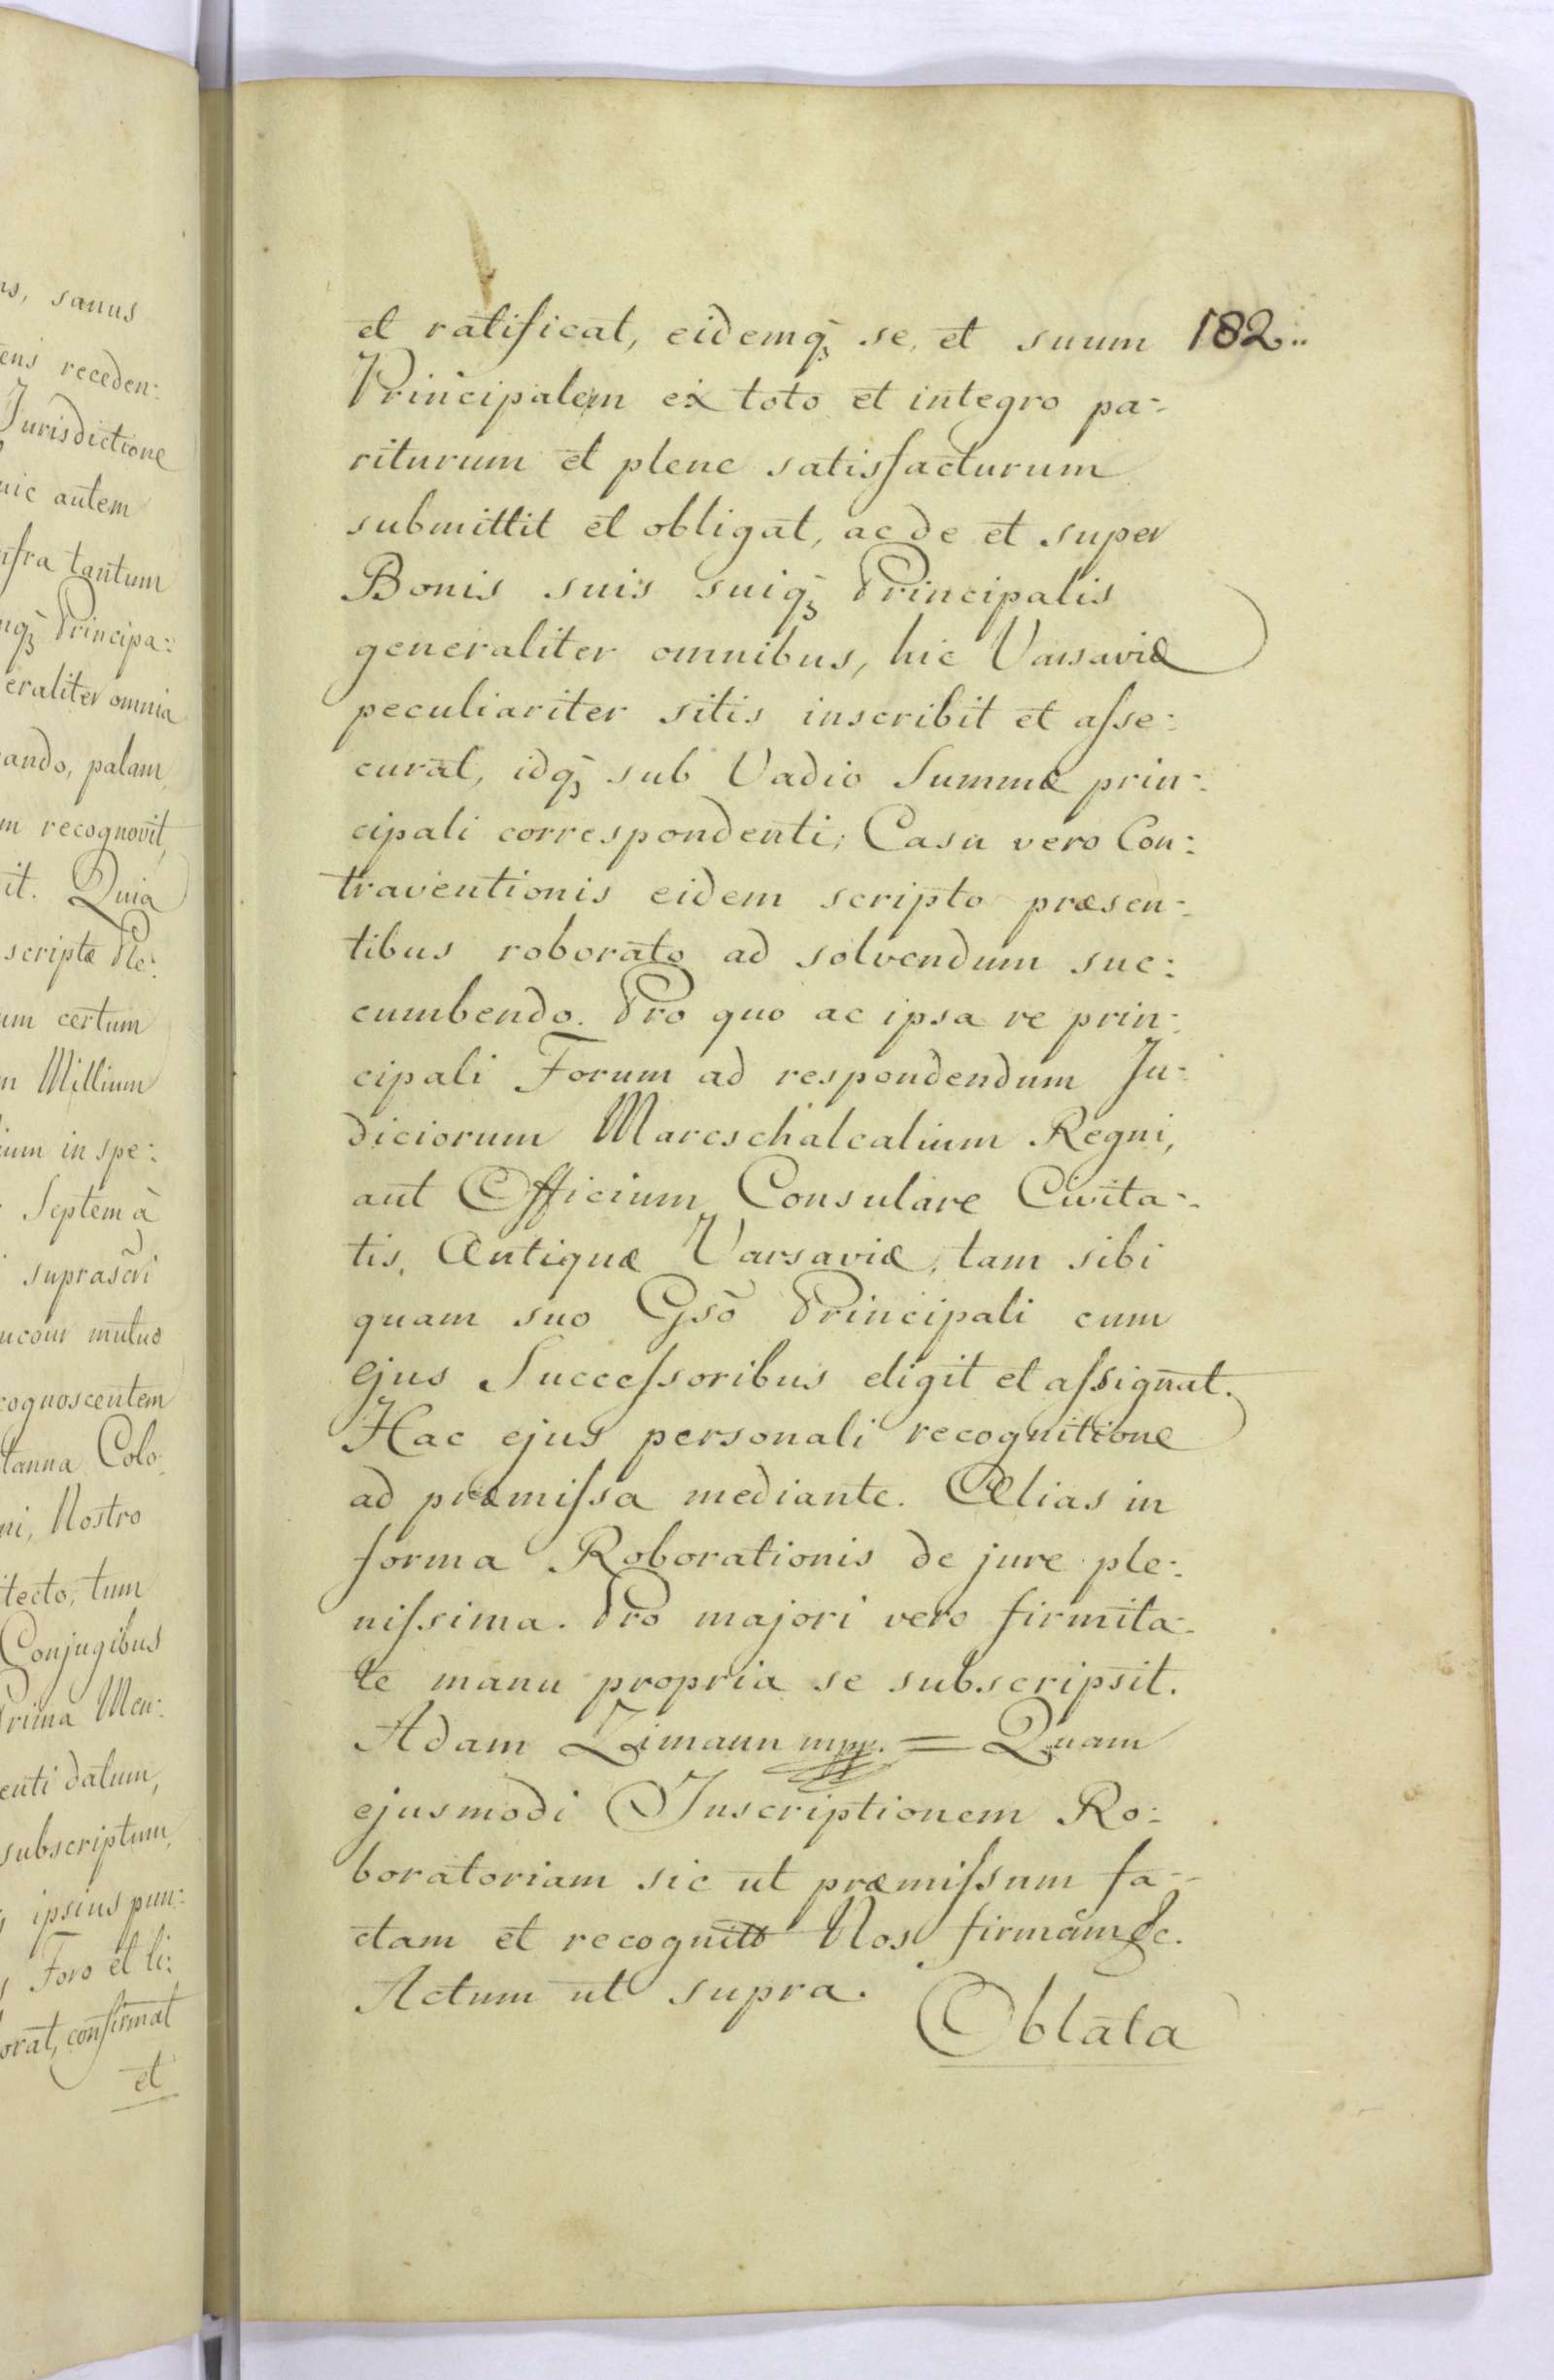 ns, sanus
ens receden:
Jurisdictione
autem
infra tantum
Principa:
eraliter omnia
ando, palam
m recognovit,
it. Quia
scriptæ Ple:
um certum
m Millium
ium in spe:
Septem à
suprascri
mutuo
cognoscentem
Colo:
ni, Nostro
itecto, tum
Conjugibus
Prima Men:
enti datum,
subscriptum,
ipsius pun:
Foro et li:
orat, confirmat
et
et ratificat, eidemq₃ se, et suum 182..
Principalem ex toto et integro pa:
riturum et plene satisfacturum
submittit et obligat, ac de et super
Bonis suis suiq₃ Principalis
generaliter omnibus, hic Varsaviæ
peculiariter sitis inscribit et aſse:
curat, idq₃ sub Vadio Summæ prin:
cipali correspondenti, Casu vero Con:
traventionis eidem scripto præsen:
tibus roborato ad solvendum suc:
cumbendo. Pro quo ac ipsa re prin:
cipali Forum ad respondendum Ju:
diciorum Mareschalcalium Regni,
aut Officium Consulare Civita:
tis, Antiquæ Varsaviæ, tam sibi
quam suo Gsō Principali cum
ejus Succeſsoribus eligit et aſsignat.
Hac ejus personali recognitione
ad præmiſsa mediante. Alias in
forma Roborationis de jure ple:
niſsima. Pro majori vero firmita:
te manu propria se subscripsit.
Adam Zimann mpp. = Quam
ejusmodi Inscriptionem Ro:
boratoriam sic ut præmiſsum fa:
ctam et recognitō Nos firmām &c.
Actum ut supra.
Oblata